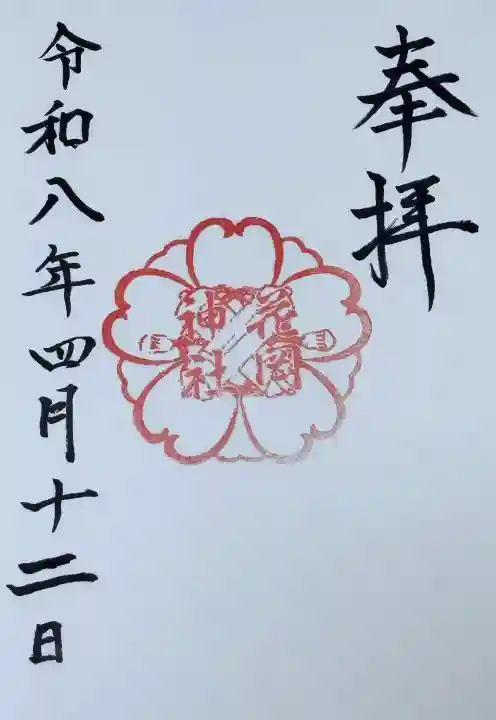 奉拝
花岡
神社
令和八年四月十二日